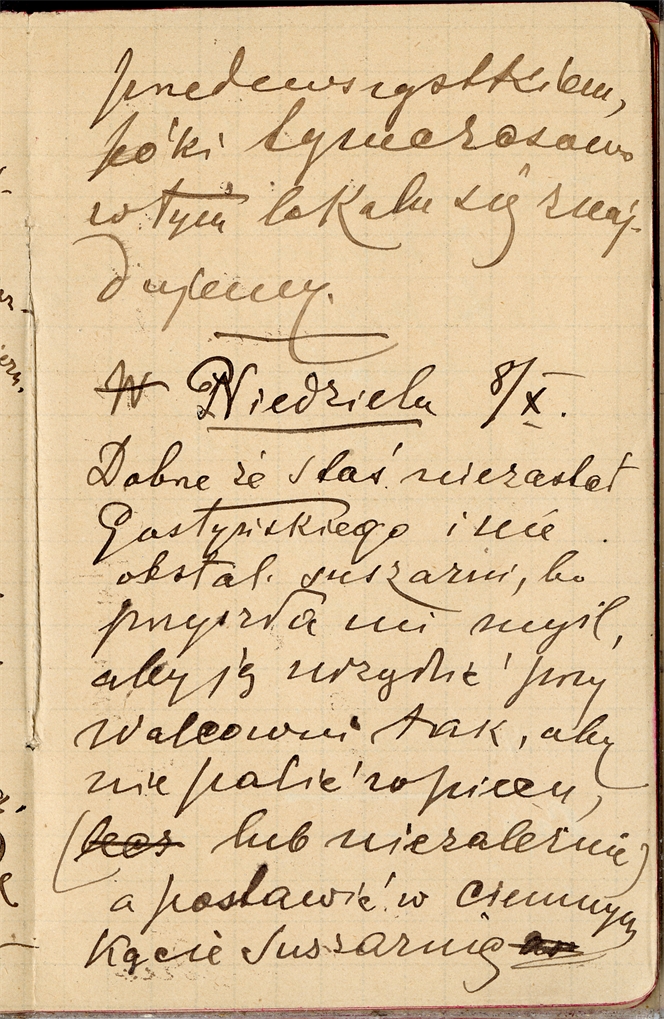 przedewszystkiem,
póki tymczasowo
w tym lokalu się znaj-
dujemy.
W Niedziela 8/X.
Dobrze że Staś niezastał
Gostyńskiego i nie
obstal. suszarni, bo
przyszła mi myśl,
aby ją urządzić przy
Walcowni tak, aby
nie palić w piecu,
(bez lub niezależnie)
a postawić w ciemnym
kącie Suszarnię